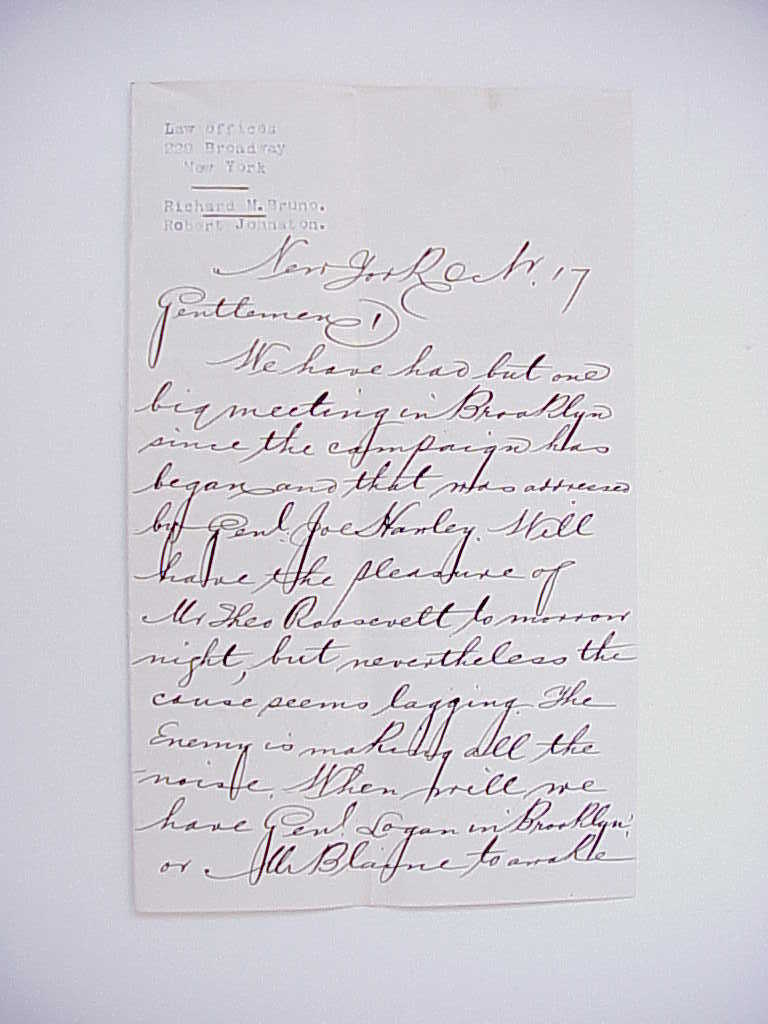 Law offices
220 Broadway
New York
Richard M. Bruno.
Robert Johnston.
New York 17
Gentlemen,
We have had but one
big meeting in Brooklyn
since the campaign has
began and that was addressed
by Genl. Joe Hawley. Will
have the pleasure of
Mr Theo Roosevelt to morrow
night, but nevertheless the
cause seems lagging. The
Enemy is making all the
noise. When will we
have Genl. Logan in Brooklyn?
or Mr Blaine to awake